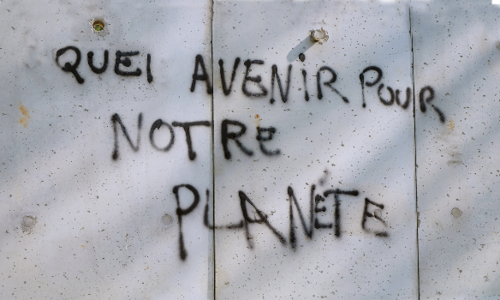 QUEl AVENIR POUR
NOTRE
PLANÈTE